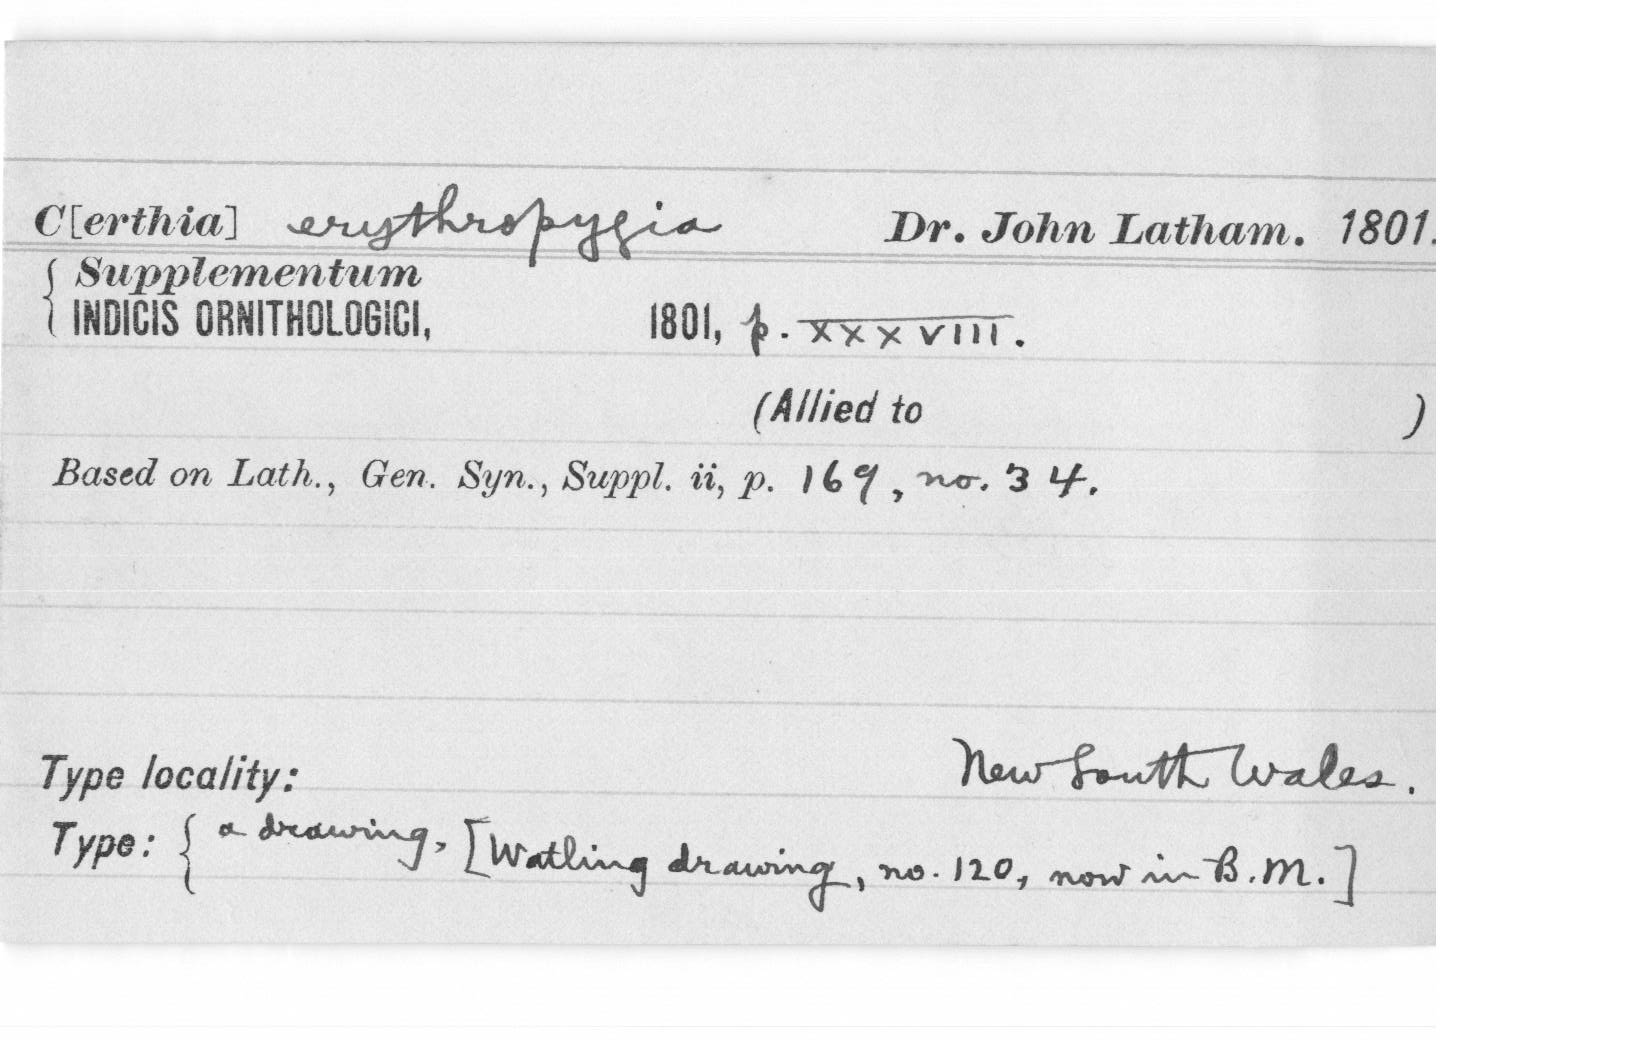 C[erthia] erythropygia Dr. John Latham. 1801.
{ Supplementum
INDICIS ORNITHOLOGICI, 1801, p. XXXVIII.
(Allied to )
Based on Lath., Gen. Syn., Suppl. ii, p. 169, no. 34.
Type locality: New South Wales.
Type: { a drawing, [Watling drawing, no. 120, now in B.M.]